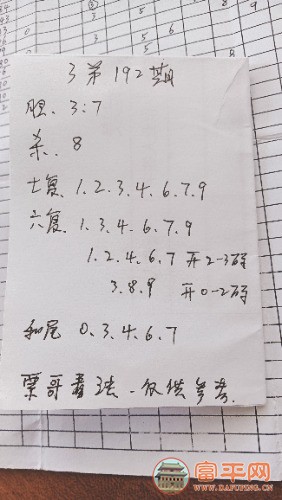 3第192期
胆. 3.7
杀. 8
七复 1.2.3.4.6.7.9
六复. 1.3.4.6.7.9
1.2.4.6.7 开2-3码
3.8.9 开0-2码
和尾 0.3.4.6.7
栗哥看法-仅供参考.
富平网
WWW.DAFUPING.CN